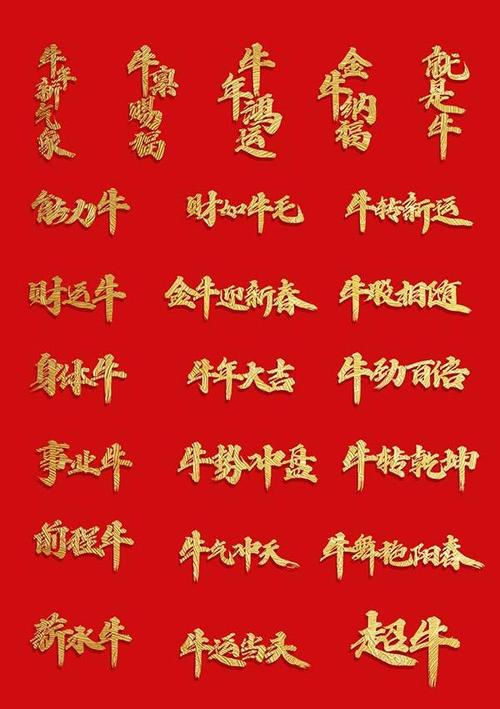 牛年新气象
赐福
牛年鸿运
金牛纳福
就是牛
能力牛
财如牛毛
牛转新运
财运牛
金牛迎新春
牛股相随
身体牛
牛年大吉
牛劲百倍
事业牛
牛势冲盘
牛转乾坤
前程牛
牛气冲天
牛舞艳阳春
薪水牛
牛运当头
超牛